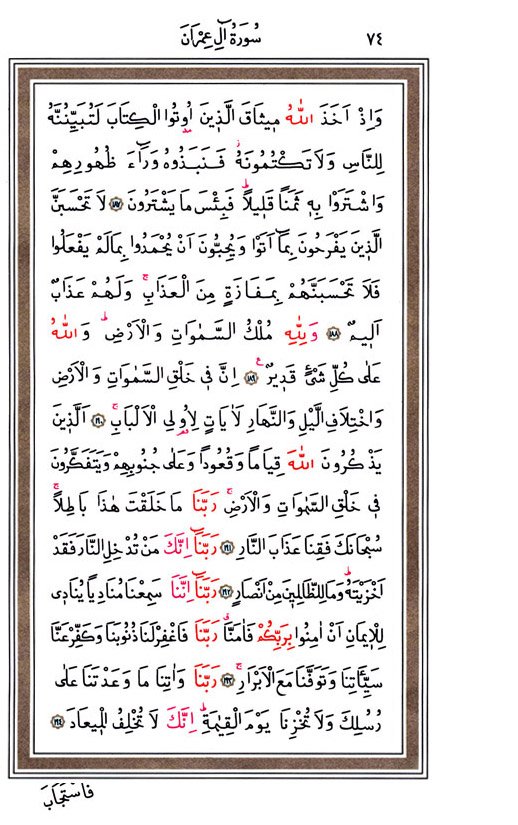 ٧٤
سُورَةُ اٰلِ عِمْرٰنَ
وَاِذْ اَخَذَ اللّٰهُ مٖيثَاقَ الَّذٖينَ اُوتُوا الْكِتَابَ لَتُبَيِّنُنَّهُ
لِلنَّاسِ وَلَا تَكْتُمُونَهُۘ فَنَبَذُوهُ وَرَٓاءَ ظُهُورِهِمْ
وَاشْتَرَوْا بِهٖ ثَمَناً قَلٖيلاًۜ فَبِئْسَ مَا يَشْتَرُونَ ﴿١٨٧﴾ لَا تَحْسَبَنَّ
الَّذٖينَ يَفْرَحُونَ بِمَٓا اَتَوْا وَيُحِبُّونَ اَنْ يُحْمَدُوا بِمَا لَمْ يَفْعَلُوا
فَلَا تَحْسَبَنَّهُمْ بِمَفَازَةٍ مِنَ الْعَذَابِۚ وَلَهُمْ عَذَابٌ
اَلٖيمٌ ﴿١٨٨﴾ وَلِلّٰهِ مُلْكُ السَّمٰوَاتِ وَالْاَرْضِۜ وَاللّٰهُ
عَلٰى كُلِّ شَيْءٍ قَدٖيرٌ۟ ﴿١٨٩﴾ اِنَّ فٖي خَلْقِ السَّمٰوَاتِ وَالْاَرْضِ
وَاخْتِلَافِ الَّيْلِ وَالنَّهَارِ لَاٰيَاتٍ لِاُولِي الْاَلْبَابِۚ ﴿١٩٠﴾ اَلَّذٖينَ
يَذْكُرُونَ اللّٰهَ قِيَاماً وَقُعُوداً وَعَلٰى جُنُوبِهِمْ وَيَتَفَكَّرُونَ
فٖي خَلْقِ السَّمٰوَاتِ وَالْاَرْضِۚ رَبَّنَا مَا خَلَقْتَ هٰذَا بَاطِلاًۚ
سُبْحَانَكَ فَقِنَا عَذَابَ النَّارِ ﴿١٩١﴾ رَبَّنَٓا اِنَّكَ مَنْ تُدْخِلِ النَّارَ فَقَدْ
اَخْزَيْتَهُۜ وَمَا لِلظَّالِمٖينَ مِنْ اَنْصَارٍ ﴿١٩٢﴾ رَبَّنَٓا اِنَّنَا سَمِعْنَا مُنَادِياً يُنَادٖي
لِلْاٖيمَانِ اَنْ اٰمِنُوا بِرَبِّكُمْ فَاٰمَنَّاۗ رَبَّنَا فَاغْفِرْ لَنَا ذُنُوبَنَا وَكَفِّرْ عَنَّا
سَيِّـَٔاتِنَا وَتَوَفَّنَا مَعَ الْاَبْرَارِۚ ﴿١٩٣﴾ رَبَّنَا وَاٰتِنَا مَا وَعَدْتَنَا عَلٰى
رُسُلِكَ وَلَا تُخْزِنَا يَوْمَ الْقِيٰمَةِۜ اِنَّكَ لَا تُخْلِفُ الْمٖيعَادَ ﴿١٩٤﴾
فَاسْتَجَابَ